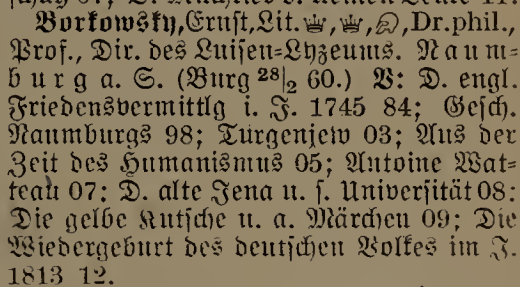 Borkowsky, Ernst, Lit. Dr. phil.,
Prof., Dir. des Luisen-Lyzeums. Naum=
burg a. S. (Burg 28|2 60.) V: D. engl.
Friedensvermittlg i. J. 1745 84; Gesch.
Naumburgs 98; Turgenjew 03; Aus der
Zeit des Humanismus 05; Antoine Wat=
teau 07; D. alte Jena u. s. Universität 08;
Die gelbe Kutsche u. a. Märchen 09; Die
Wiedergeburt des deutschen Volkes im J.
1813 12.